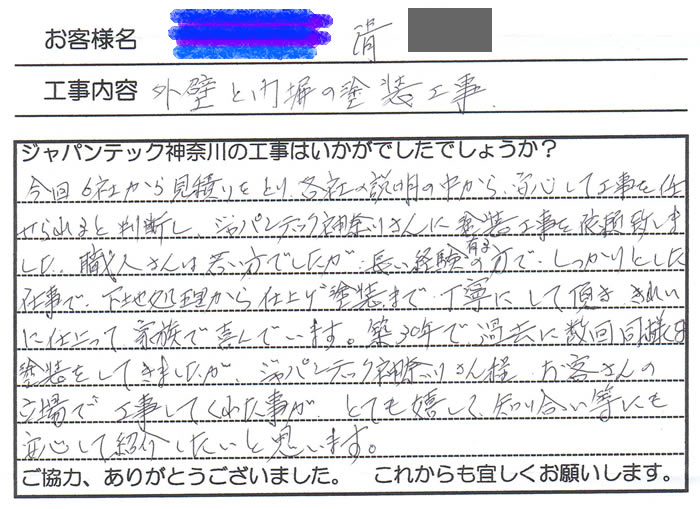 お客様名 清
工事内容 外壁と内塀の塗装工事.
ジャパンテック神奈川の工事はいかがでしたでしょうか？
今回6社から見積りをとり、各社の説明の中から、安心して工事を任
せられると判断し、ジャパンテック神奈川さんに塗装工事を依頼致しま
した。職人さんは若い方でしたが、長い経験有るの方で、しっかりとした
仕事で、下地処理から仕上げ塗装まで、丁寧にして頂き きれい
に仕上って家族で喜んでいます。築30年で、過去に数回同様な
塗装をしてきましたが、ジャパンテック神奈川さん程、お客さんの
立場で工事してくれた事が、とても嬉しく、知り合い等にも
安心して紹介したいと思います。
ご協力、ありがとうございました。 これからも宜しくお願いします。